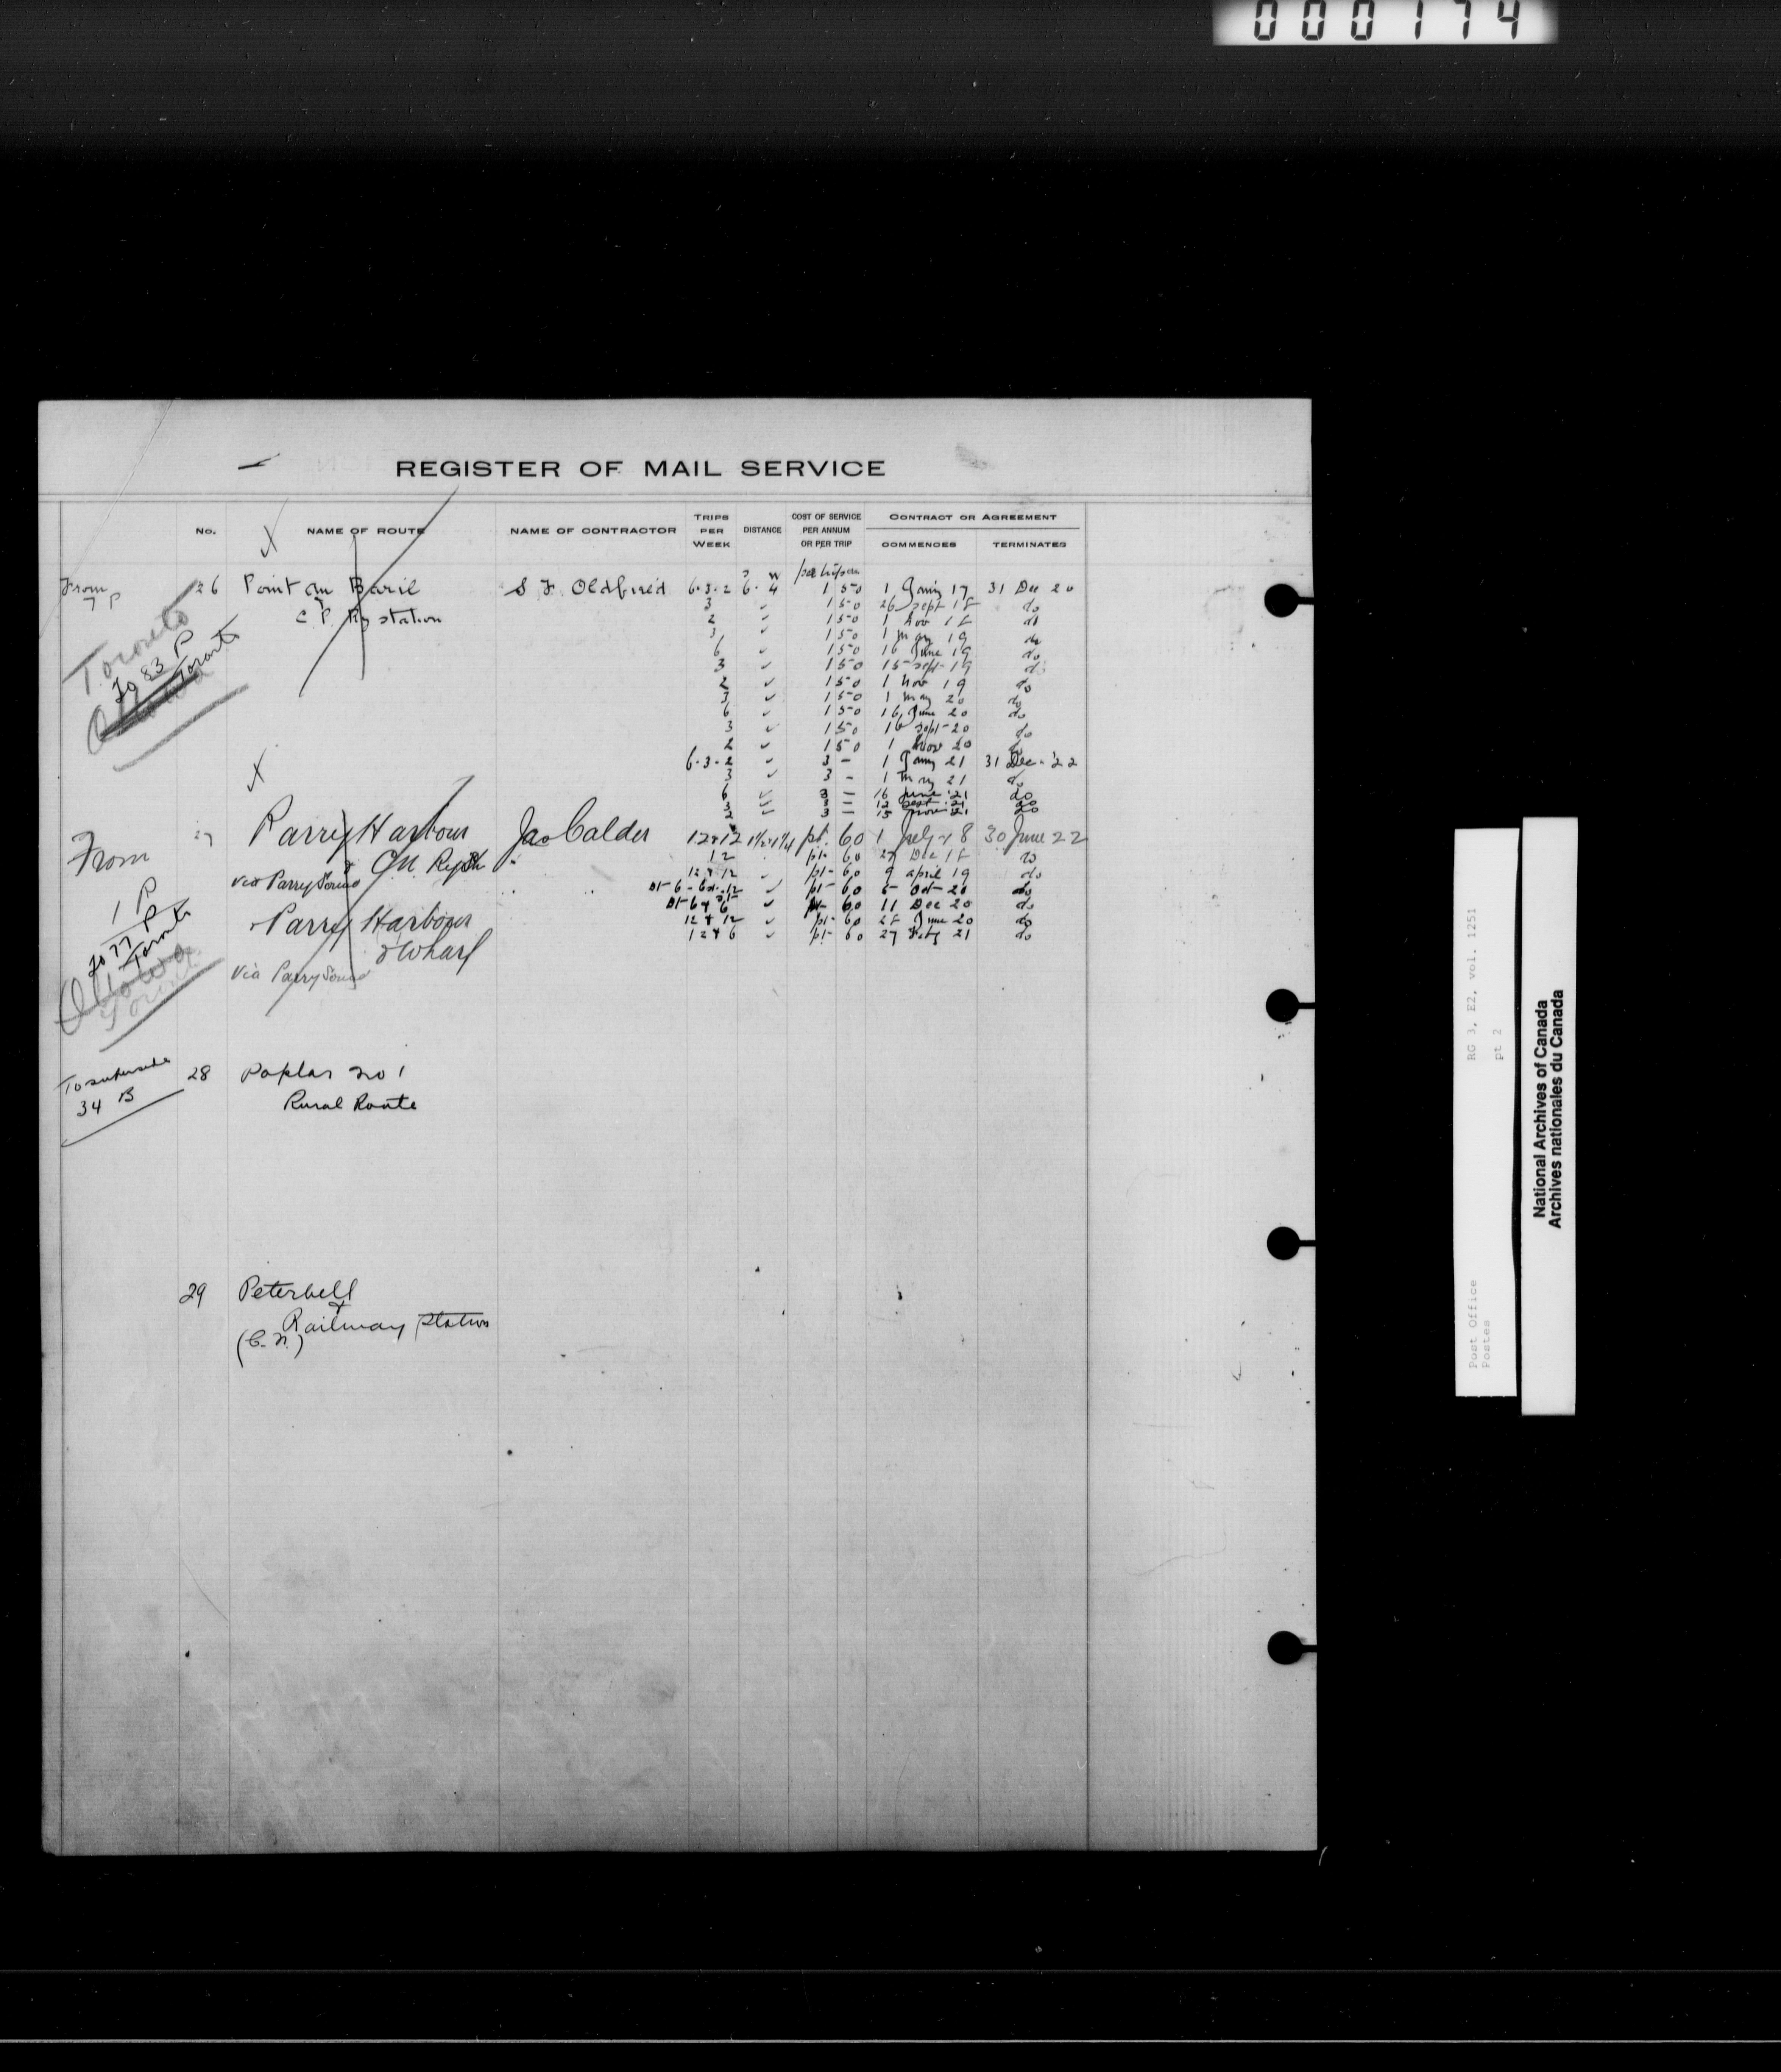 000174
REGISTER OF MAIL SERVICE
No. NAME OF ROUTE NAME OF CONTRACTOR TRIPS PER WEEK DISTANCE COST OF SERVICE PER ANNUM OR PER TRIP CONTRACT OR AGREEMENT
COMMENCES TERMINATES
From 26 Point au Baril S. F. Oldfield 6.3.2 6. 4 1 50 1 Jany 17 31 Dec 20
7 P
& C. P. Ry station
3 150 26 Sept 18 do
2 150 1 Nov 18 do
3 150 1 May 19 do
6 150 16 June 19 do
3 150 15 Sept 19 do
2 150 1 Nov 19 do
3 150 1 May 20 do
6 150 16 June 20 do
3 150 16 Sept 20 do
2 150 1 Nov 20 do
6.3.2 3 - 1 Jany 21 31 Dec. '22
3 3 - 1 May 21 do
6 3 - 16 June '21 do
3 3 - 12 Sept '21 do
2 3 - 15 Nov '21 do
Toronto
To 83 P
Toronto
Ottawa
From 27 Parry Harbour Jas Calder 12 & 12 pt. 60 1 July 18 30 June 22
12 pt. 60 27 Dec 18 do
via Parry Sound 12 & 12 pt. 60 9 April 19 do
pt. 60 5 Oct 20 do
1 P
& Parry Harbour pt. 60 11 Dec 20 do
12 & 12 pt. 60 28 June 20 do
& Wharf 12 & 6 pt. 60 27 Feby 21 do
via Parry Sound
To 77 P
Toronto
Ottawa
To supersede 28 Poplar No 1
34 B
Rural Route
29 Peterbell
&
Railway Station
(C. N.)
Post Office RG 3, E2, vol. 1251
Postes pt 2
National Archives of Canada
Archives nationales du Canada